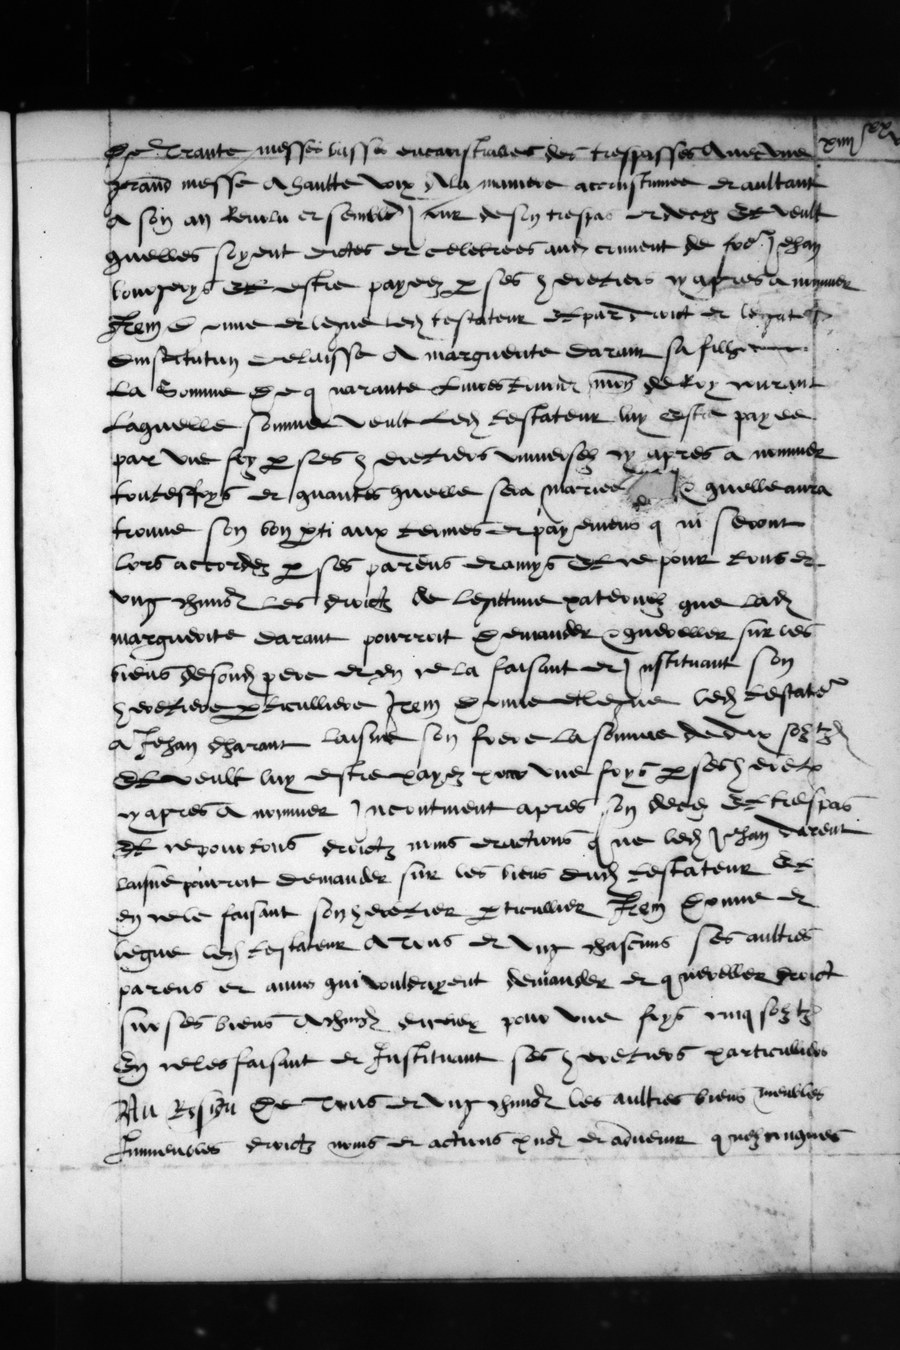 De Trante messes basses encaristiales des trespasses avec une
grand messe a haulte voix a la maniere acoustumee et aultant
a son an revolu et semble jour de son trespas et deces Et veult
quelles soyent dictes et celebrees aud couvent de Jehan
Et estre payees p ses heretiers cy apres a nommer
Item d onne et legue led testateur Et par droict et
dinstitution delaisse a marguerite darant sa filhe
La Somme de q uarante livres tourn mon de Roy courant
Laquelle somme veult led testateur luy estre payee
par une foy p ses heretiers universelz cy apres a nommer
toutesfoys et quantes quelle sera mariee quelle aura
trouve son bon pti aux termes et payemens q ui seront
lors accordez p ses parens et amys Et ce pour tous et
ung chmus les droictz de legitime paternelz que lad
marguerite darant pourroit demander quereller sur les
biens de sond pere et en ce la faisant et Instituant son
heretiere pticulliere Item donne et legue led testate
a Jehan dharant laisne son frere la somme de dix solz tz
Et veult luy estre payez pour une foys p sesd heret
cy apres a nommer Incontinent apres son deces Et trespas
Et ce pour tous droictz noms et actions q ue led Jehan darent
laisne pourroit demander sur les biens dud testateur Et
en ce le faisant son heretier pticullier Item donne et
legue led testateur a tous et ung chascuns ses aultres
parens et amis qui vouldroyent demander et quereller droict
sur ses biens a chmd diceulx pour une foys cinq solz tz
En ce les faisant et Instituant ses heretiers particulliers
Au Residu De Tous et ung chmus les aultres biens meubles
Immeubles droictz noms et actions pns et advenir quelzcunques